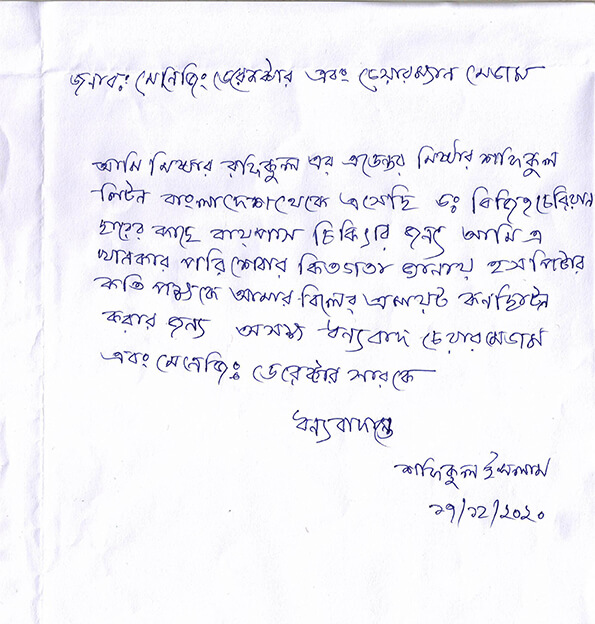 জনাবঃ মেনেজিং ডেরেক্টার এবং চেয়ারম্যান মেডাম
আমি মিষ্টার রফিকুল এর এটেন্ডেন্ট মিষ্টার শফিকুল
লিটন বাংলাদেশ থেকে এসেছি ডঃ বিজিৎ চেরিয়ান
ছারের কাছে বায়পাস চিকিৎসার জন্য আমি এ
খানকার পরিশেবার কিতগতা জানায় হসপিটাল
কতি পক্ষকে আমার বিলের এমাউন্ট কনছিডাল
করার জন্য অসংখ্য ধন্যবাদ চেয়ারমেডাম
এবং মেনেজিং ডেরেক্টার সারকে
ধন্যবাদান্তে
শফিকুল ইসলাম
১৭/১২/২০২০